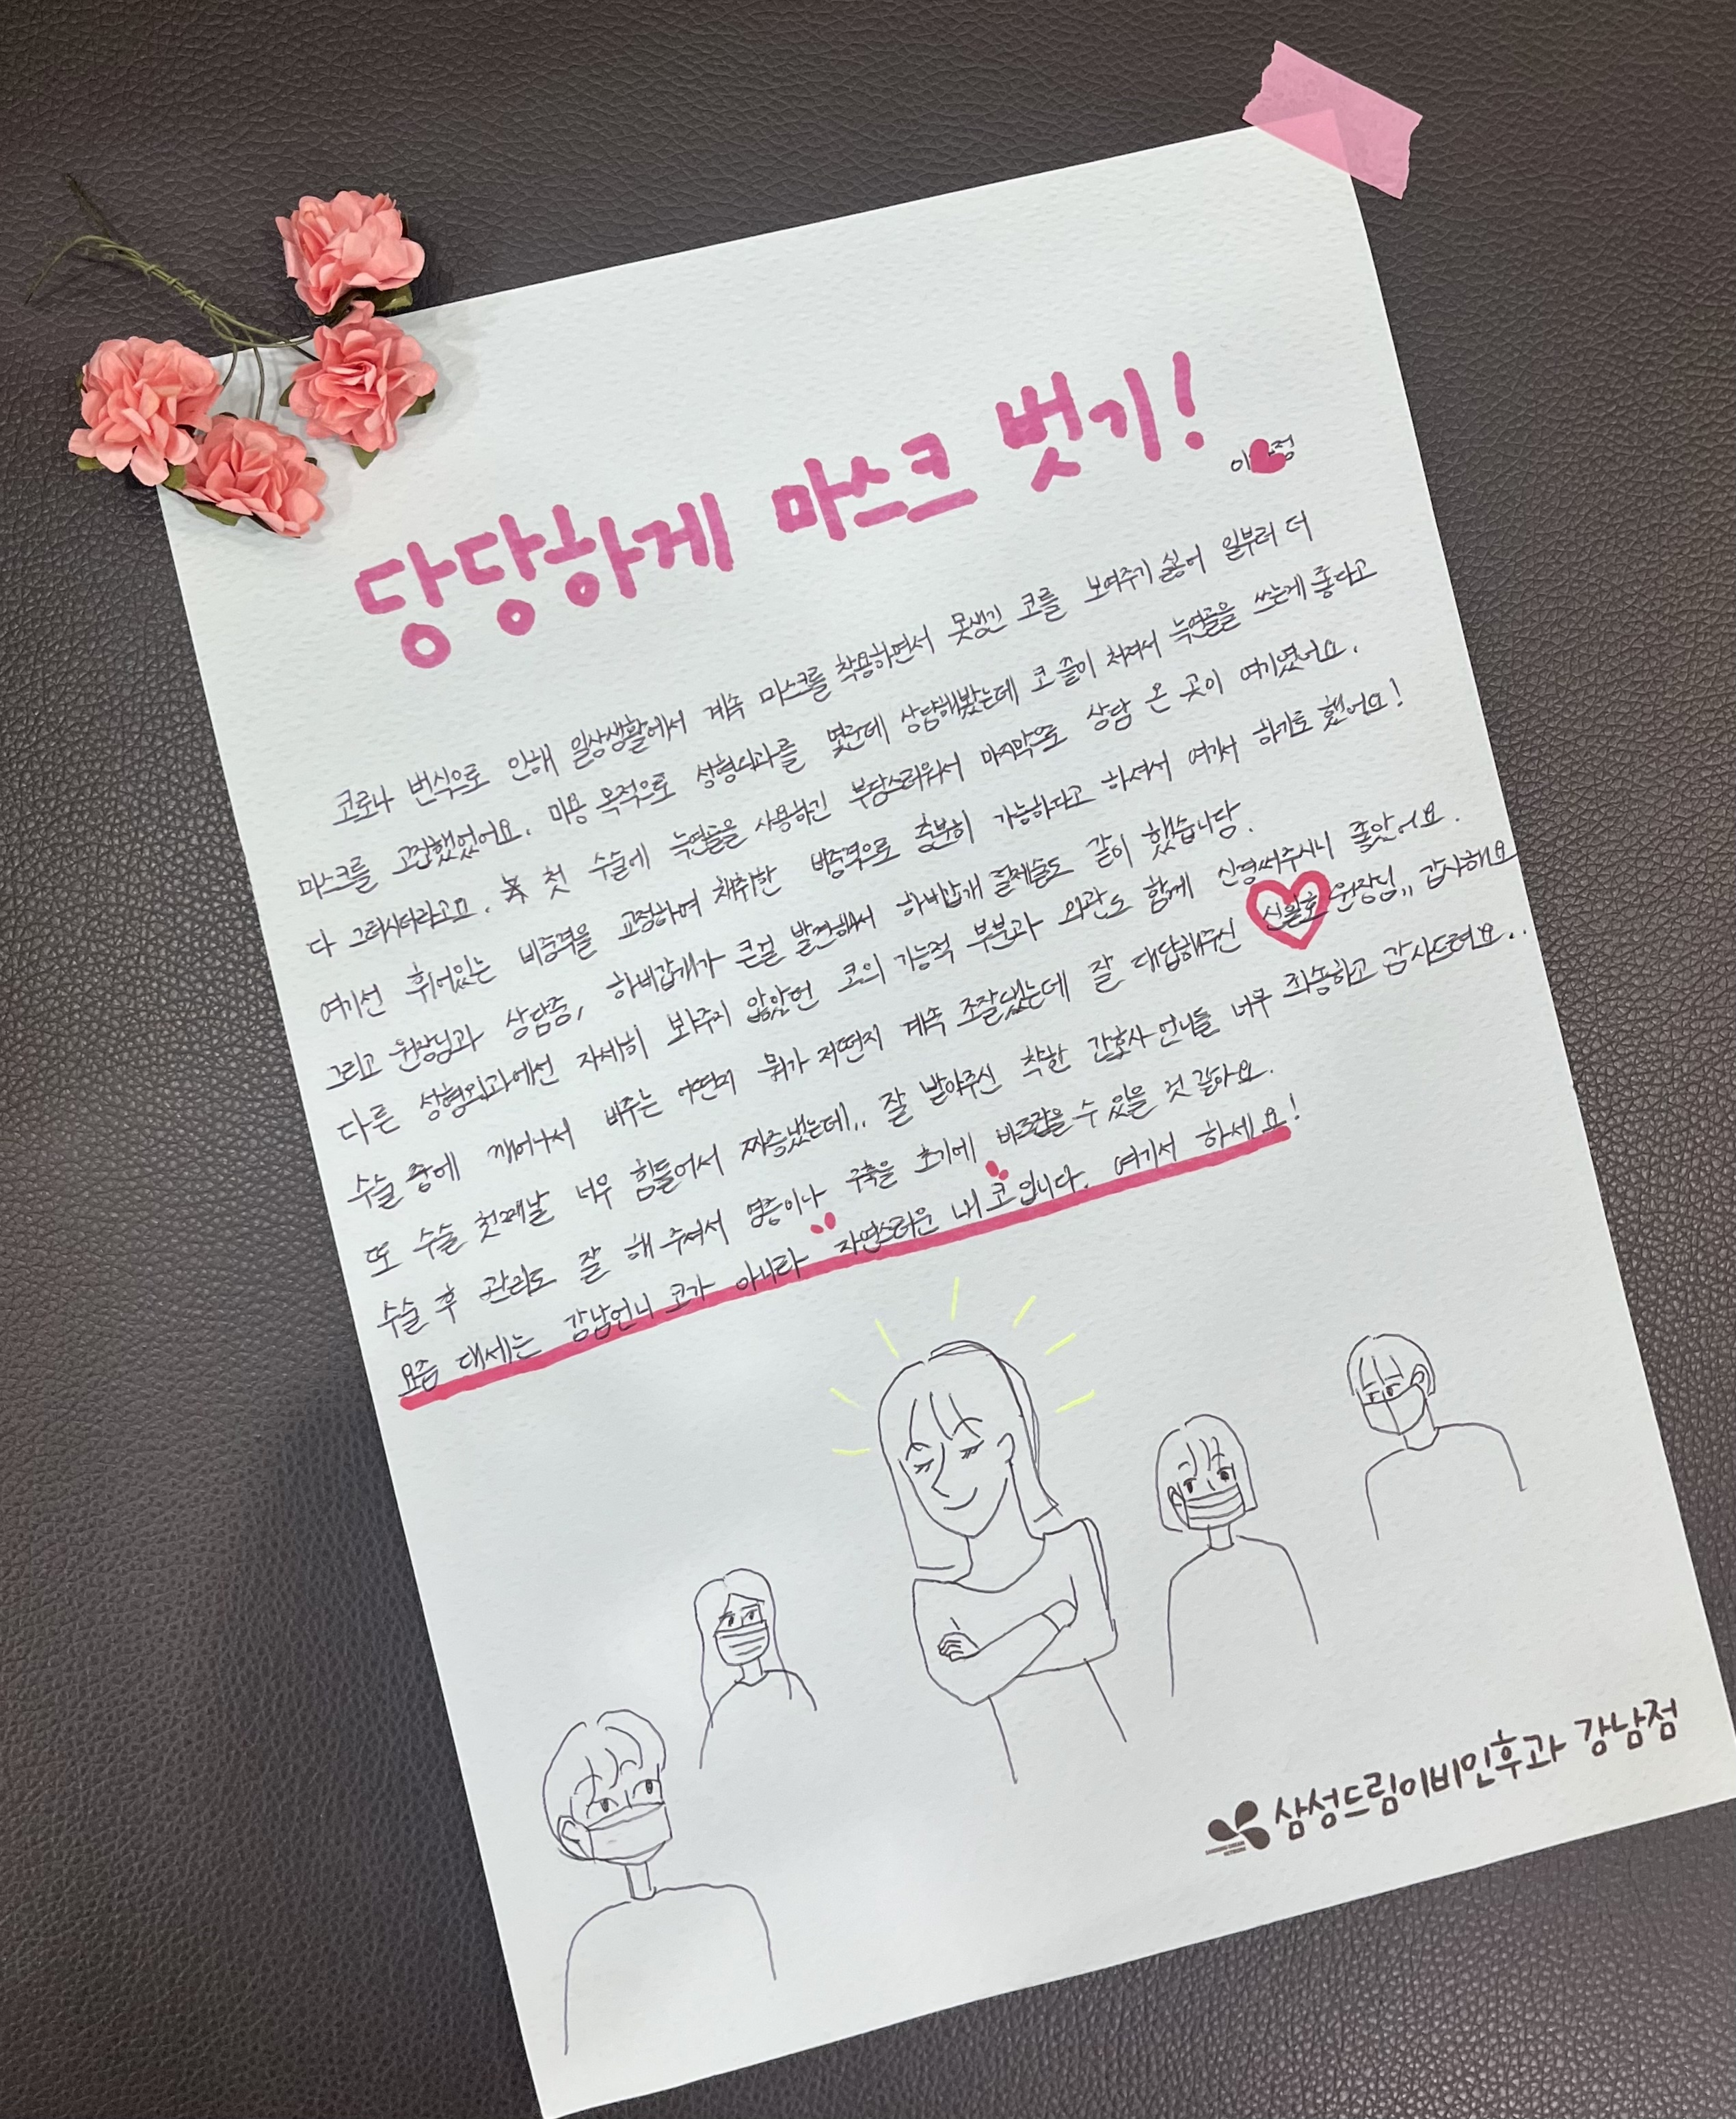 당당하게 마스크 벗기!
이 정
코로나 번식으로 인해 일상생활에서 계속 마스크를 착용하면서 못생긴 코를 보여주기 싫어 일부러 더
마스크를 고집했었어요. 미용 목적으로 성형외과를 몇군데 상담해봤는데 코 끝이 처져서 늑연골을 쓰는게 좋다고
다 그러시더라고요. 첫 수술에 늑연골을 사용하긴 부담스러워서 마지막으로 상담 온 곳이 여기였어요.
여기선 휘어있는 비중격을 교정하며 채취한 비중격으로 충분히 가능하다고 하셔서 여기서 하기로 했어요!
그리고 원장님과 상담중, 하비갑개가 큰걸 발견해서 하비갑개 절제술도 같이 했습니당.
다른 성형외과에선 자세히 봐주지 않았던 코의 기능적 부분과 외관도 함께 신경써주시니 좋았어요.
수술 중에 깨어나서 배주는 어떤지 뭐가 저떤지 계속 조잘댔는데 잘 대답해주신 신일호 원장님,, 감사해요
또 수술 첫째날 너무 힘들어서 짜증냈는데,, 잘 받아주신 착한 간호사 언니들 너무 죄송하고 감사드려요..
수술 후 관리도 잘 해 주셔서 염증이나 구축을 초기에 바로잡을 수 있을 것 같아요.
요즘 대세는 강남언니 코가 아니라 자연스러운 내 코입니다. 여기서 하세요!
삼성드림이비인후과 강남점